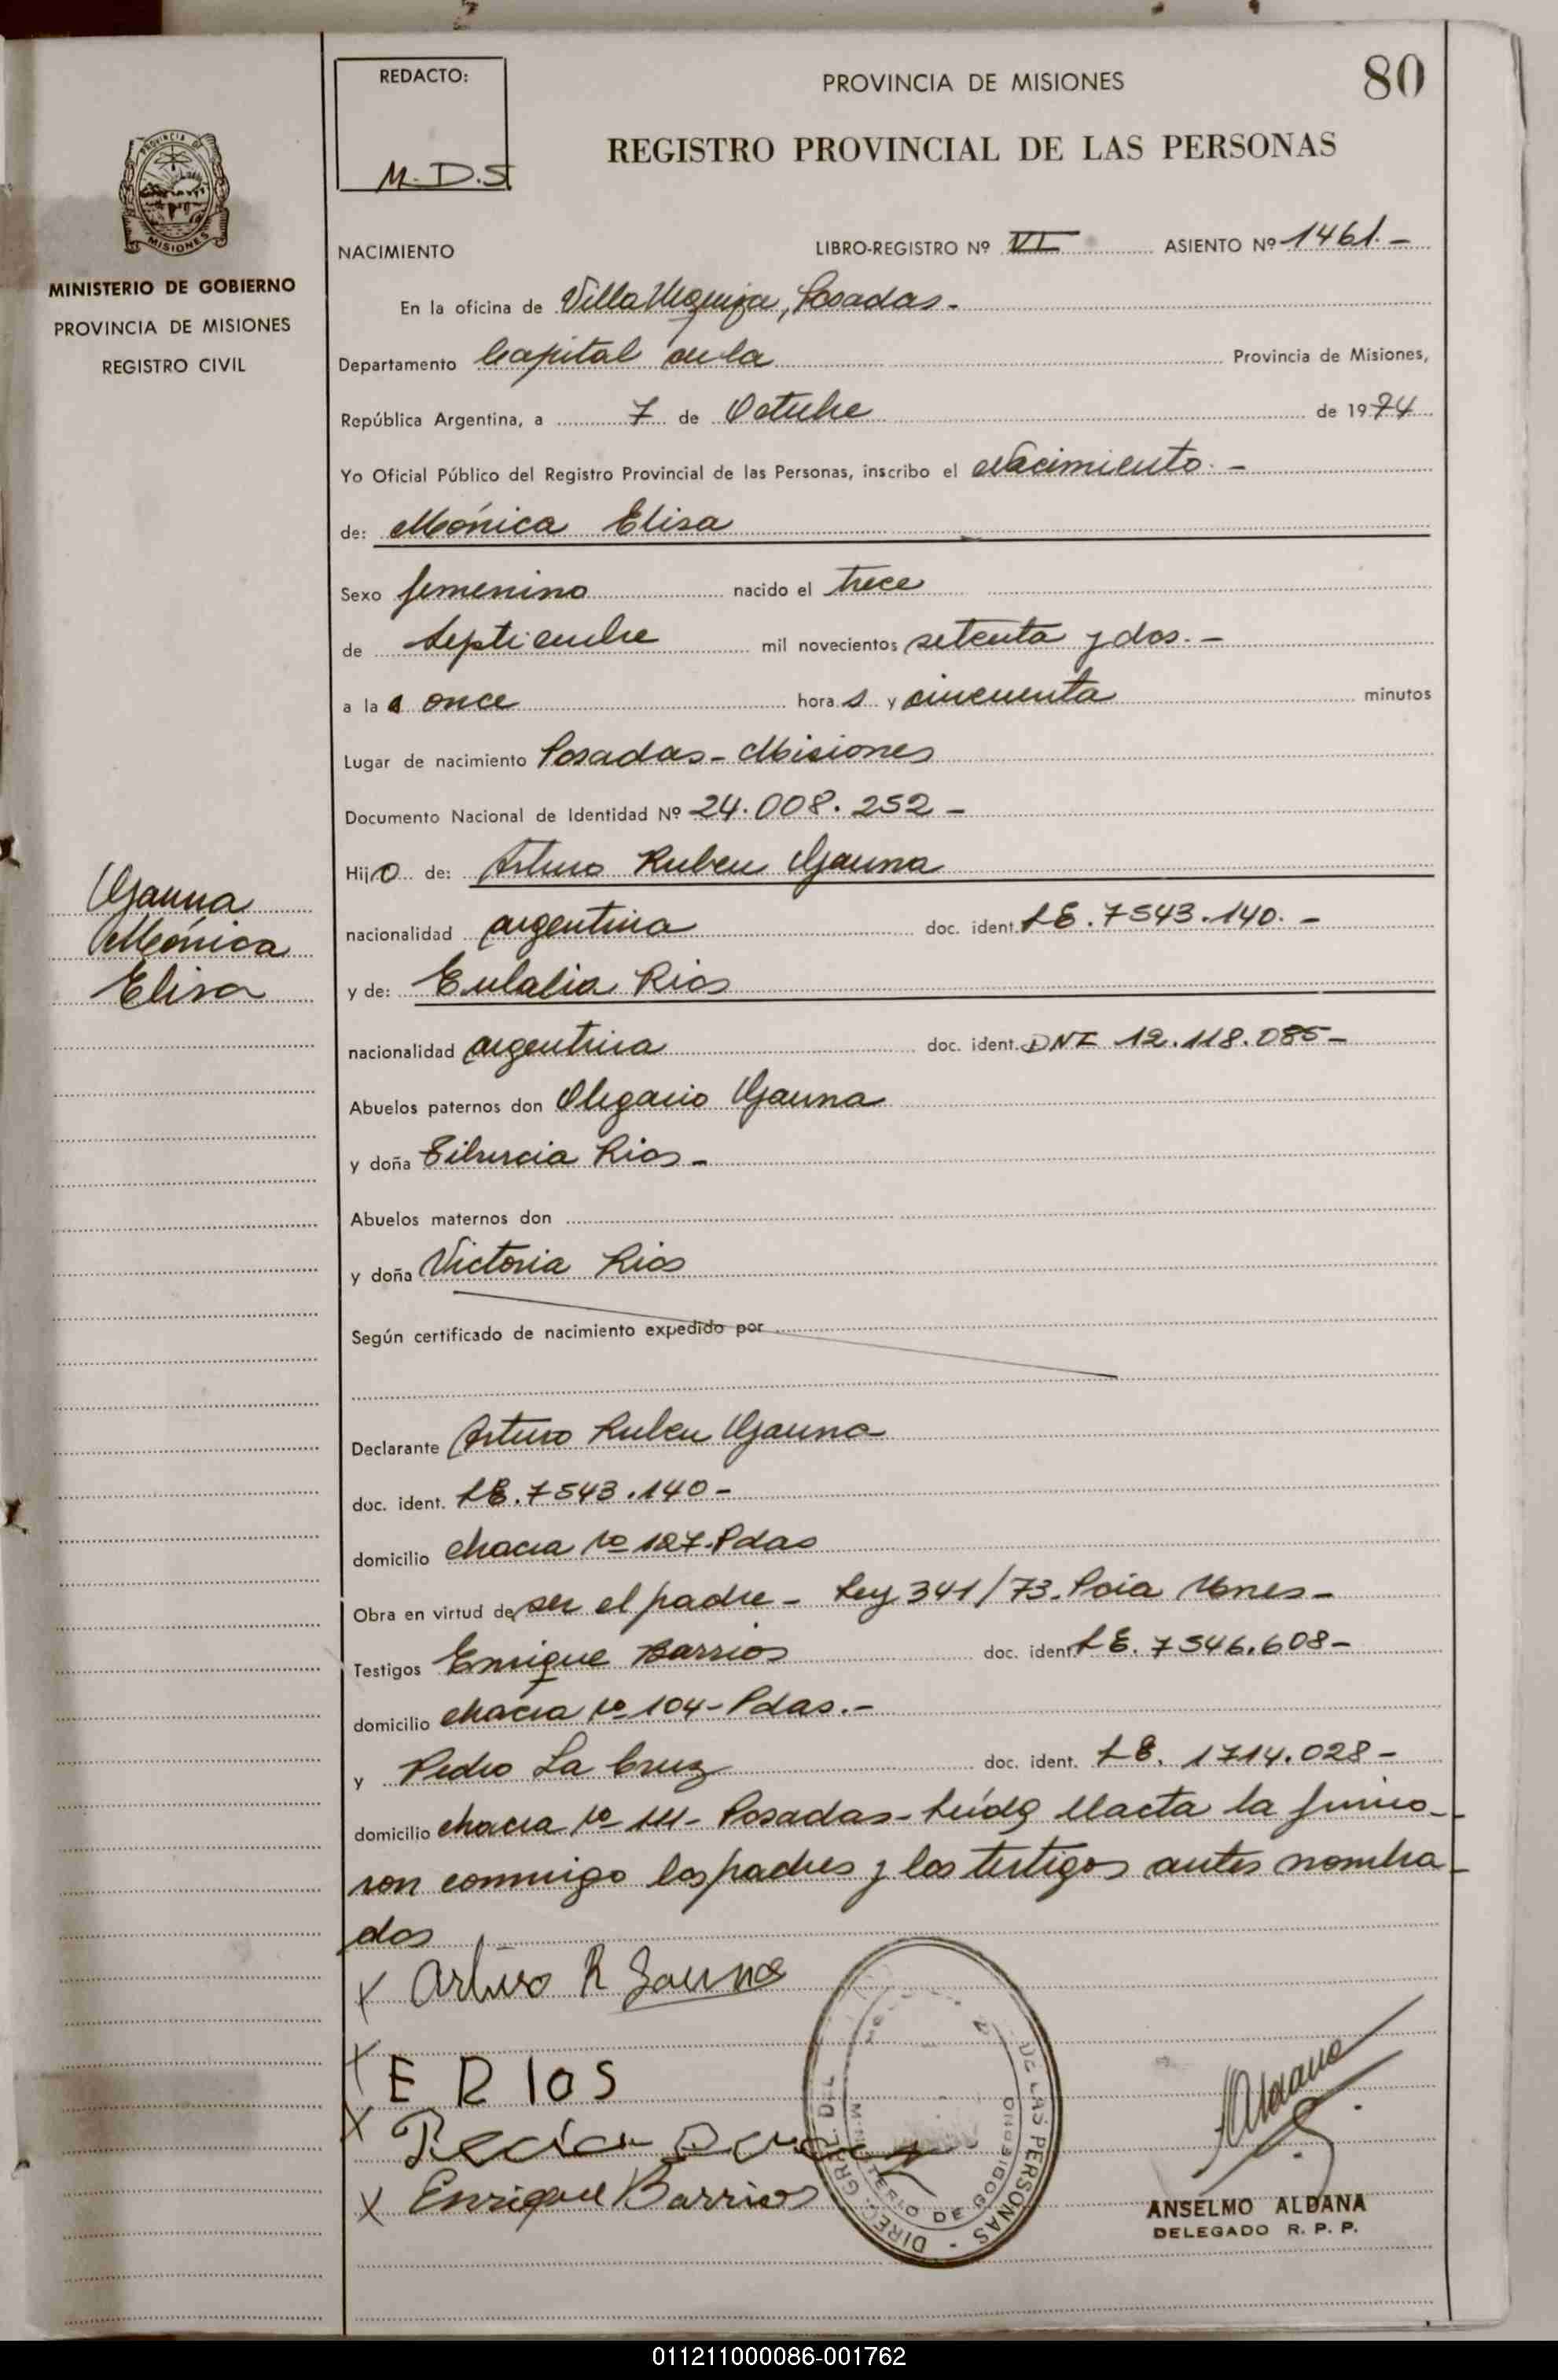 REDACTO:
M.D.S
PROVINCIA DE MISIONES
80
REGISTRO PROVINCIAL DE LAS PERSONAS
PROVINCIA DE
MISIONES
MINISTERIO DE GOBIERNO
PROVINCIA DE MISIONES
REGISTRO CIVIL
NACIMIENTO LIBRO-REGISTRO Nº VI ASIENTO Nº 1461.-
En la oficina de Villa Urquiza, Posadas.-
Departamento Capital de la Provincia de Misiones,
República Argentina, a 7 de Octubre de 1974
Yo Oficial Público del Registro Provincial de las Personas, inscribo el Nacimiento.-
de: Mónica Elisa
Sexo femenino nacido el trece
de Septiembre mil novecientos setenta y dos.-
a las once horas y cincuenta minutos
Lugar de nacimiento Posadas - Misiones
Documento Nacional de Identidad Nº 24.008.252 -
Hijo de: Arturo Ruben Gauna
nacionalidad argentina doc. ident. LE. 7543.140.-
y de: Eulalia Rios
nacionalidad argentina doc. ident. DNI 12.118.085-
Abuelos paternos don Olegario Gauna
y doña Tiburcia Rios-
Abuelos maternos don
y doña Victoria Rios
Según certificado de nacimiento expedido por
Declarante Arturo Ruben Gauna
doc. ident. LE. 7543.140-
domicilio chacra Nº 127. Pdas
Obra en virtud de ser el padre - Ley 341/73. Pcia Mnes-
Testigos Enrique Barrios doc. ident. LE. 7546.608-
domicilio chacra Nº 104 - Pdas.-
y Pedro La Cruz doc. ident. LE. 1714.028-
domicilio chacra Nº 111 - Posadas - Leída el acta la firma-
ron conmigo los padres y los testigos antes nombra-
dos
Gauna
Mónica
Elisa
x Arturo R Gauna
x E RIOS
x
x Enrique Barrios
DIREC. GRAL DEL DE LAS PERSONAS -
MINISTERIO DE GOBIERNO
Aldana
ANSELMO ALDANA
DELEGADO R. P. P.
011211000086-001762